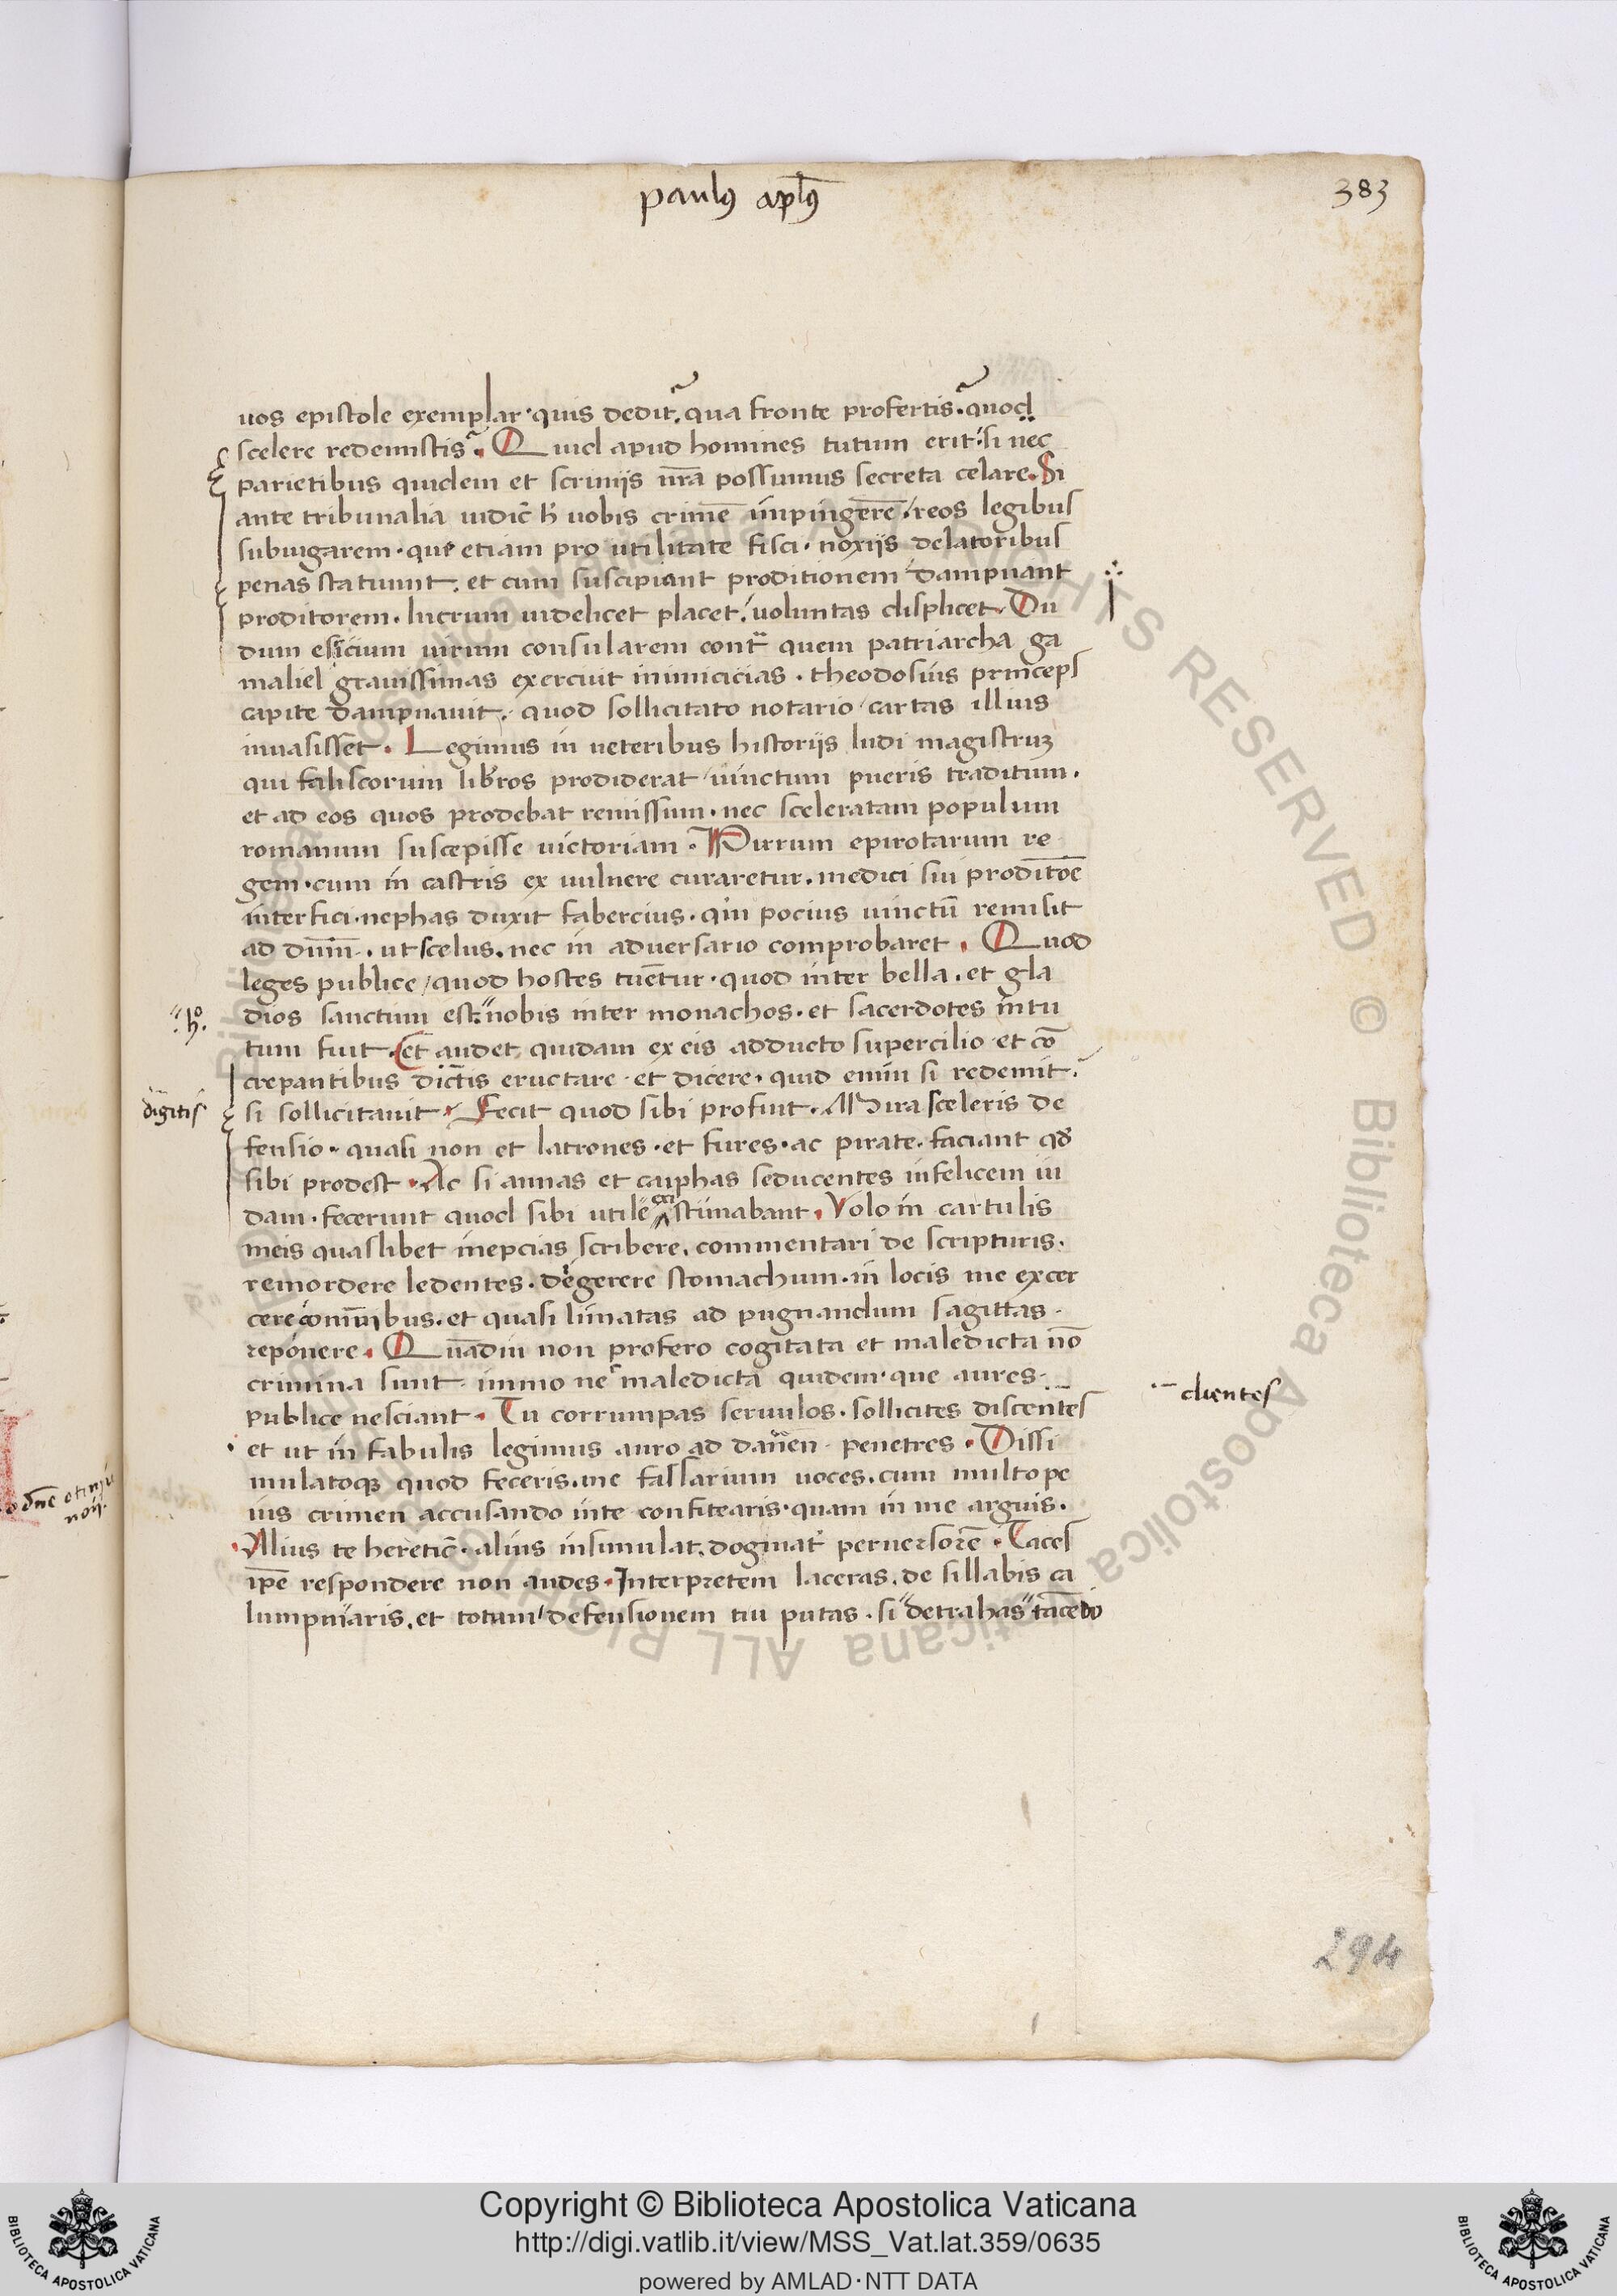 paulꝰ apl̄ꝰ
383
uos epistole exemplar · quis dedit? qua fronte profertis? quod
scelere redemistis? Quid apud homines tutum erit si nec
parietibus quidem et scrinijs nr̄a possumus secreta celare. Si
ante tribunalia iudic̄ h̄ uobis crimē impingerē reos legibus
subiugarem · que etiam pro utilitate fisci · noxijs delatoribus
penas statuunt. et cum suscipiant proditionem dampnant
proditorem. lucrum uidelicet placet uoluntas displicet. Du
dum esicium uirum consularem contᷓ quem patriarcha ga
maliel grauissimas exercuit inimicicias · theodosius princeps
capite dampnauit. quod sollicitato notario cartas illius
inuasisset. Legimus in ueteribus historijs ludi magistruꝫ
qui faliscorum libros prodiderat uinctum pueris traditum.
et ad eos quos prodebat remissum · nec sceleratam populum
romanum suscepisse uictoriam. Pirrum epirotarum re
gem · cum in castris ex uulnere curaretur. medici sui proditōe
interfici · nephas duxit fabercius. quin pocius uinctū remisit
ad dnm̄. ut scelus. nec in aduersario comprobaret. Quod
leges publice / quod hostes tuētur · quod inter bella. et gla
·h̊.
dios sanctum est nobis inter monachos · et sacerdotes intu
tum fuit. et audet quidam ex eis adducto supercilio et cō
crepantibus dictis eructare · et dicere · quid enim si redemit?
digitis
si sollicitauit. Fecit quod sibi profuit. Mira sceleris de
fensio · quasi non et latrones · et fures · ac pirate. faciant qd̄
sibi prodest. Ac si annas et caiphas seducentes infelicem iu
dam · fecerunt quod sibi utile exi stimabant. Volo in cartulis
meis quaslibet inepcias scribere. commentari de scripturis.
remordere ledentes. degerere stomachum · in locis me excer
cere comūibus. et quasi limatas ad pugnandum sagittas
reponere. Quādiu non profero cogitata et maledicta nō
crimina sunt. immo ne maledicta quidem · que aures
publice nesciant. Tu corrumpas seruulos. sollicites discentes
clientes
et ut in fabulis legimus auro ad danen penetres. Dissi
mulatoqꝫ quod feceris. me falsarium uoces. cum multo pe
ius crimen accusando inte confitearis · quam in me arguis.
Alius te heretic̄. alius insimulat. dogmat perversorē. Taces
ip̄e respondere non audes. Interpretem laceras. de sillabis ca
lumpniaris. et totam defensionem tui putas. si detrahas tacēdo
294
Copyright © Biblioteca Apostolica Vaticana
http://digi.vatlib.it/view/MSS_Vat.lat.359/0635
powered by AMLAD·NTT DATA
BIBLIOTECA APOSTOLICA VATICANA
BIBLIOTECA APOSTOLICA VATICANA